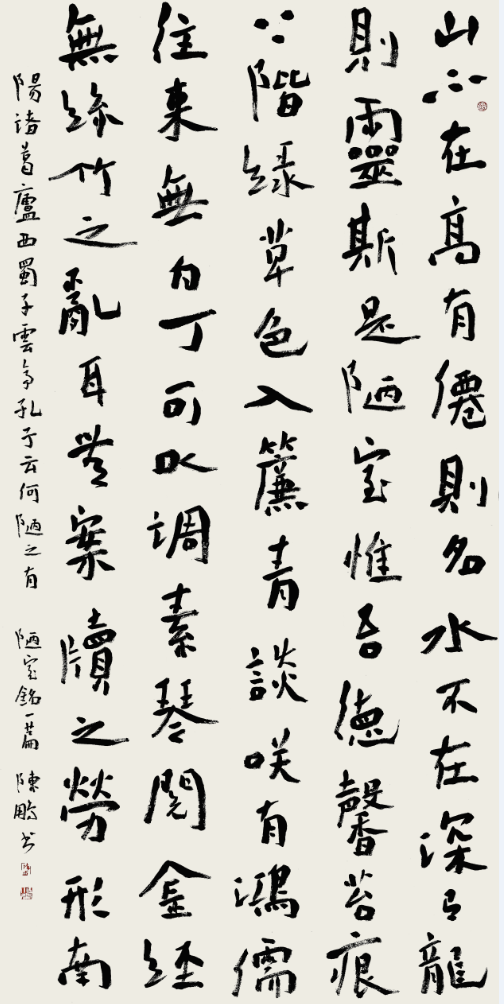 山不在高有僊則名水不在深有龍
則靈斯是陋室惟吾德馨苔痕
上階緑草色入簾青談咲有鴻儒
往来無白丁可以調素琴閱金經
無絲竹之亂耳無案牘之勞形南
陽諸葛廬西蜀子雲亭孔子云何陋之有 陋室銘一篇 陳鵬书